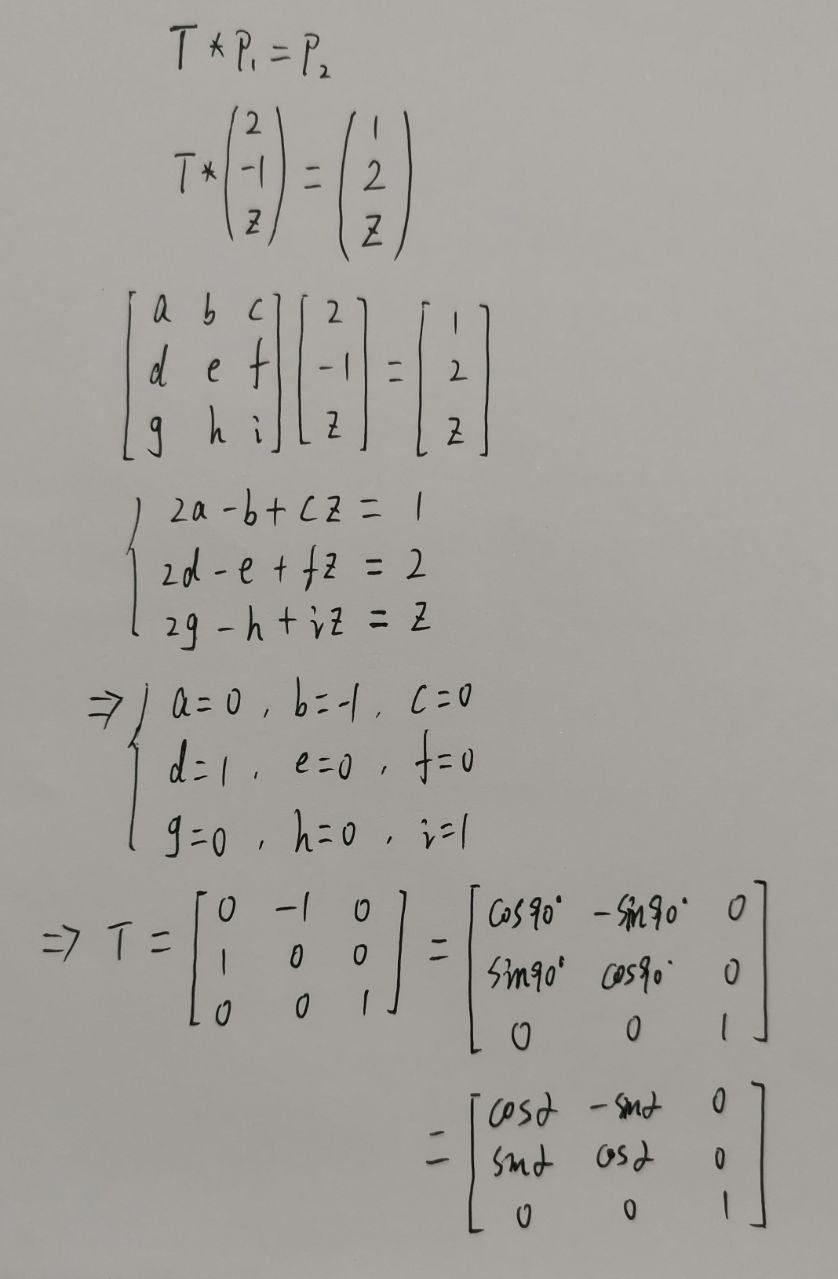 T * P₁ = P₂
T * (2 -1 z) = (1 2 z)
[a b c d e f g h i] [2 -1 z] = [1 2 z]
2a - b + cz = 1
2d - e + fz = 2
2g - h + iz = z
⇒ { a=0 , b=-1 , c=0
d=1 , e=0 , f=0
g=0 , h=0 , i=1
⇒ T = [0 -1 0 1 0 0 0 0 1] = [cos90° -sin90° 0 sin90° cos90° 0 0 0 1]
= [cosα -sinα 0 sinα cosα 0 0 0 1]